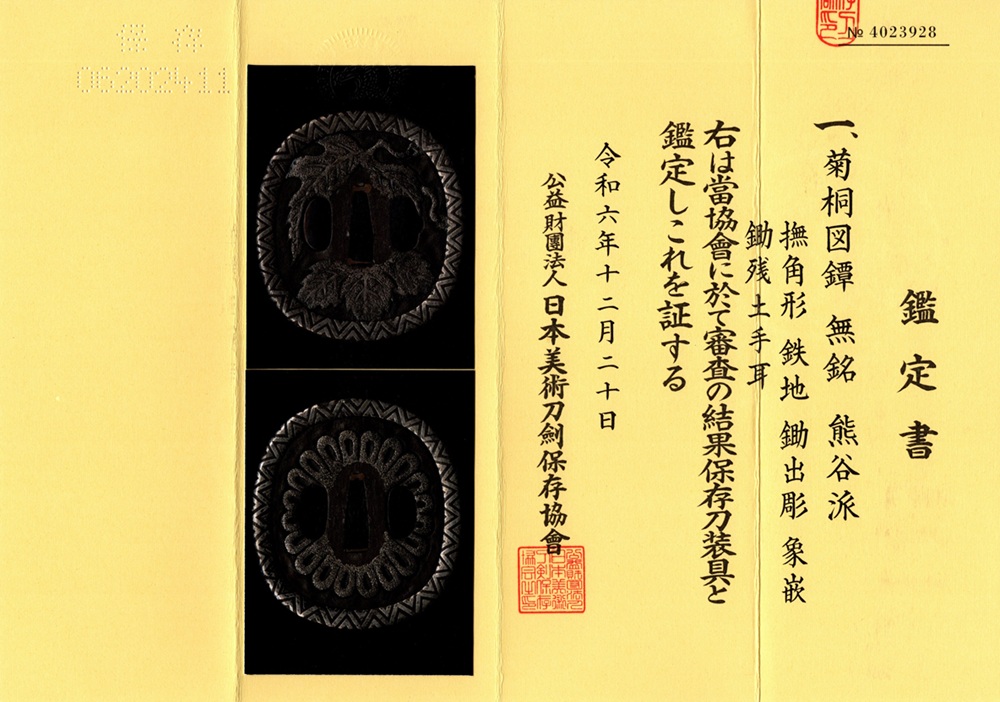 № 4023928
鑑定書
一、菊桐図鐔 無銘 熊谷派
撫角形 鉄地 鋤出彫 象嵌
鋤残土手耳
右は當協會に於て審査の結果保存刀装具と
鑑定しこれを証する
令和六年十二月二十日
公益財團法人 日本美術刀劍保存協會
保存
06202411